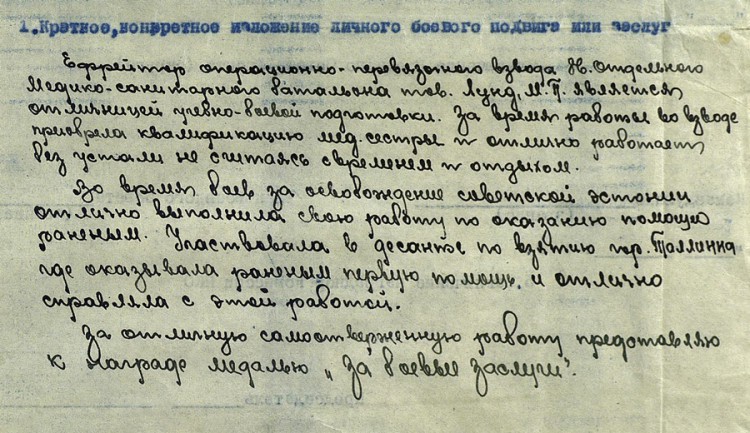 1.Краткое,конкретное изложение личного боевого подвига или заслуг
Ефрейтор операционно-перевязочного взвода Н.Отдельного
Медико-санитарного батальона тов. Лунд, М.П. является
отличницей учебно-боевой подготовки. За время работы во взводе
приобрела квалификацию мед.сестры и отлично работает
без устали не считаясь с временем и отдыхом.
Во время боев за освобождение советской эстонии
отлично выполнила свою работу по оказанию помощи
раненым. Участвовала в десанте по взятию гор. Таллинна
где оказывала раненым первую помощь и отлично
справляла с этой работой.
За отличную самоотверженную работу представляю
к награде медалью „За боевые заслуги".